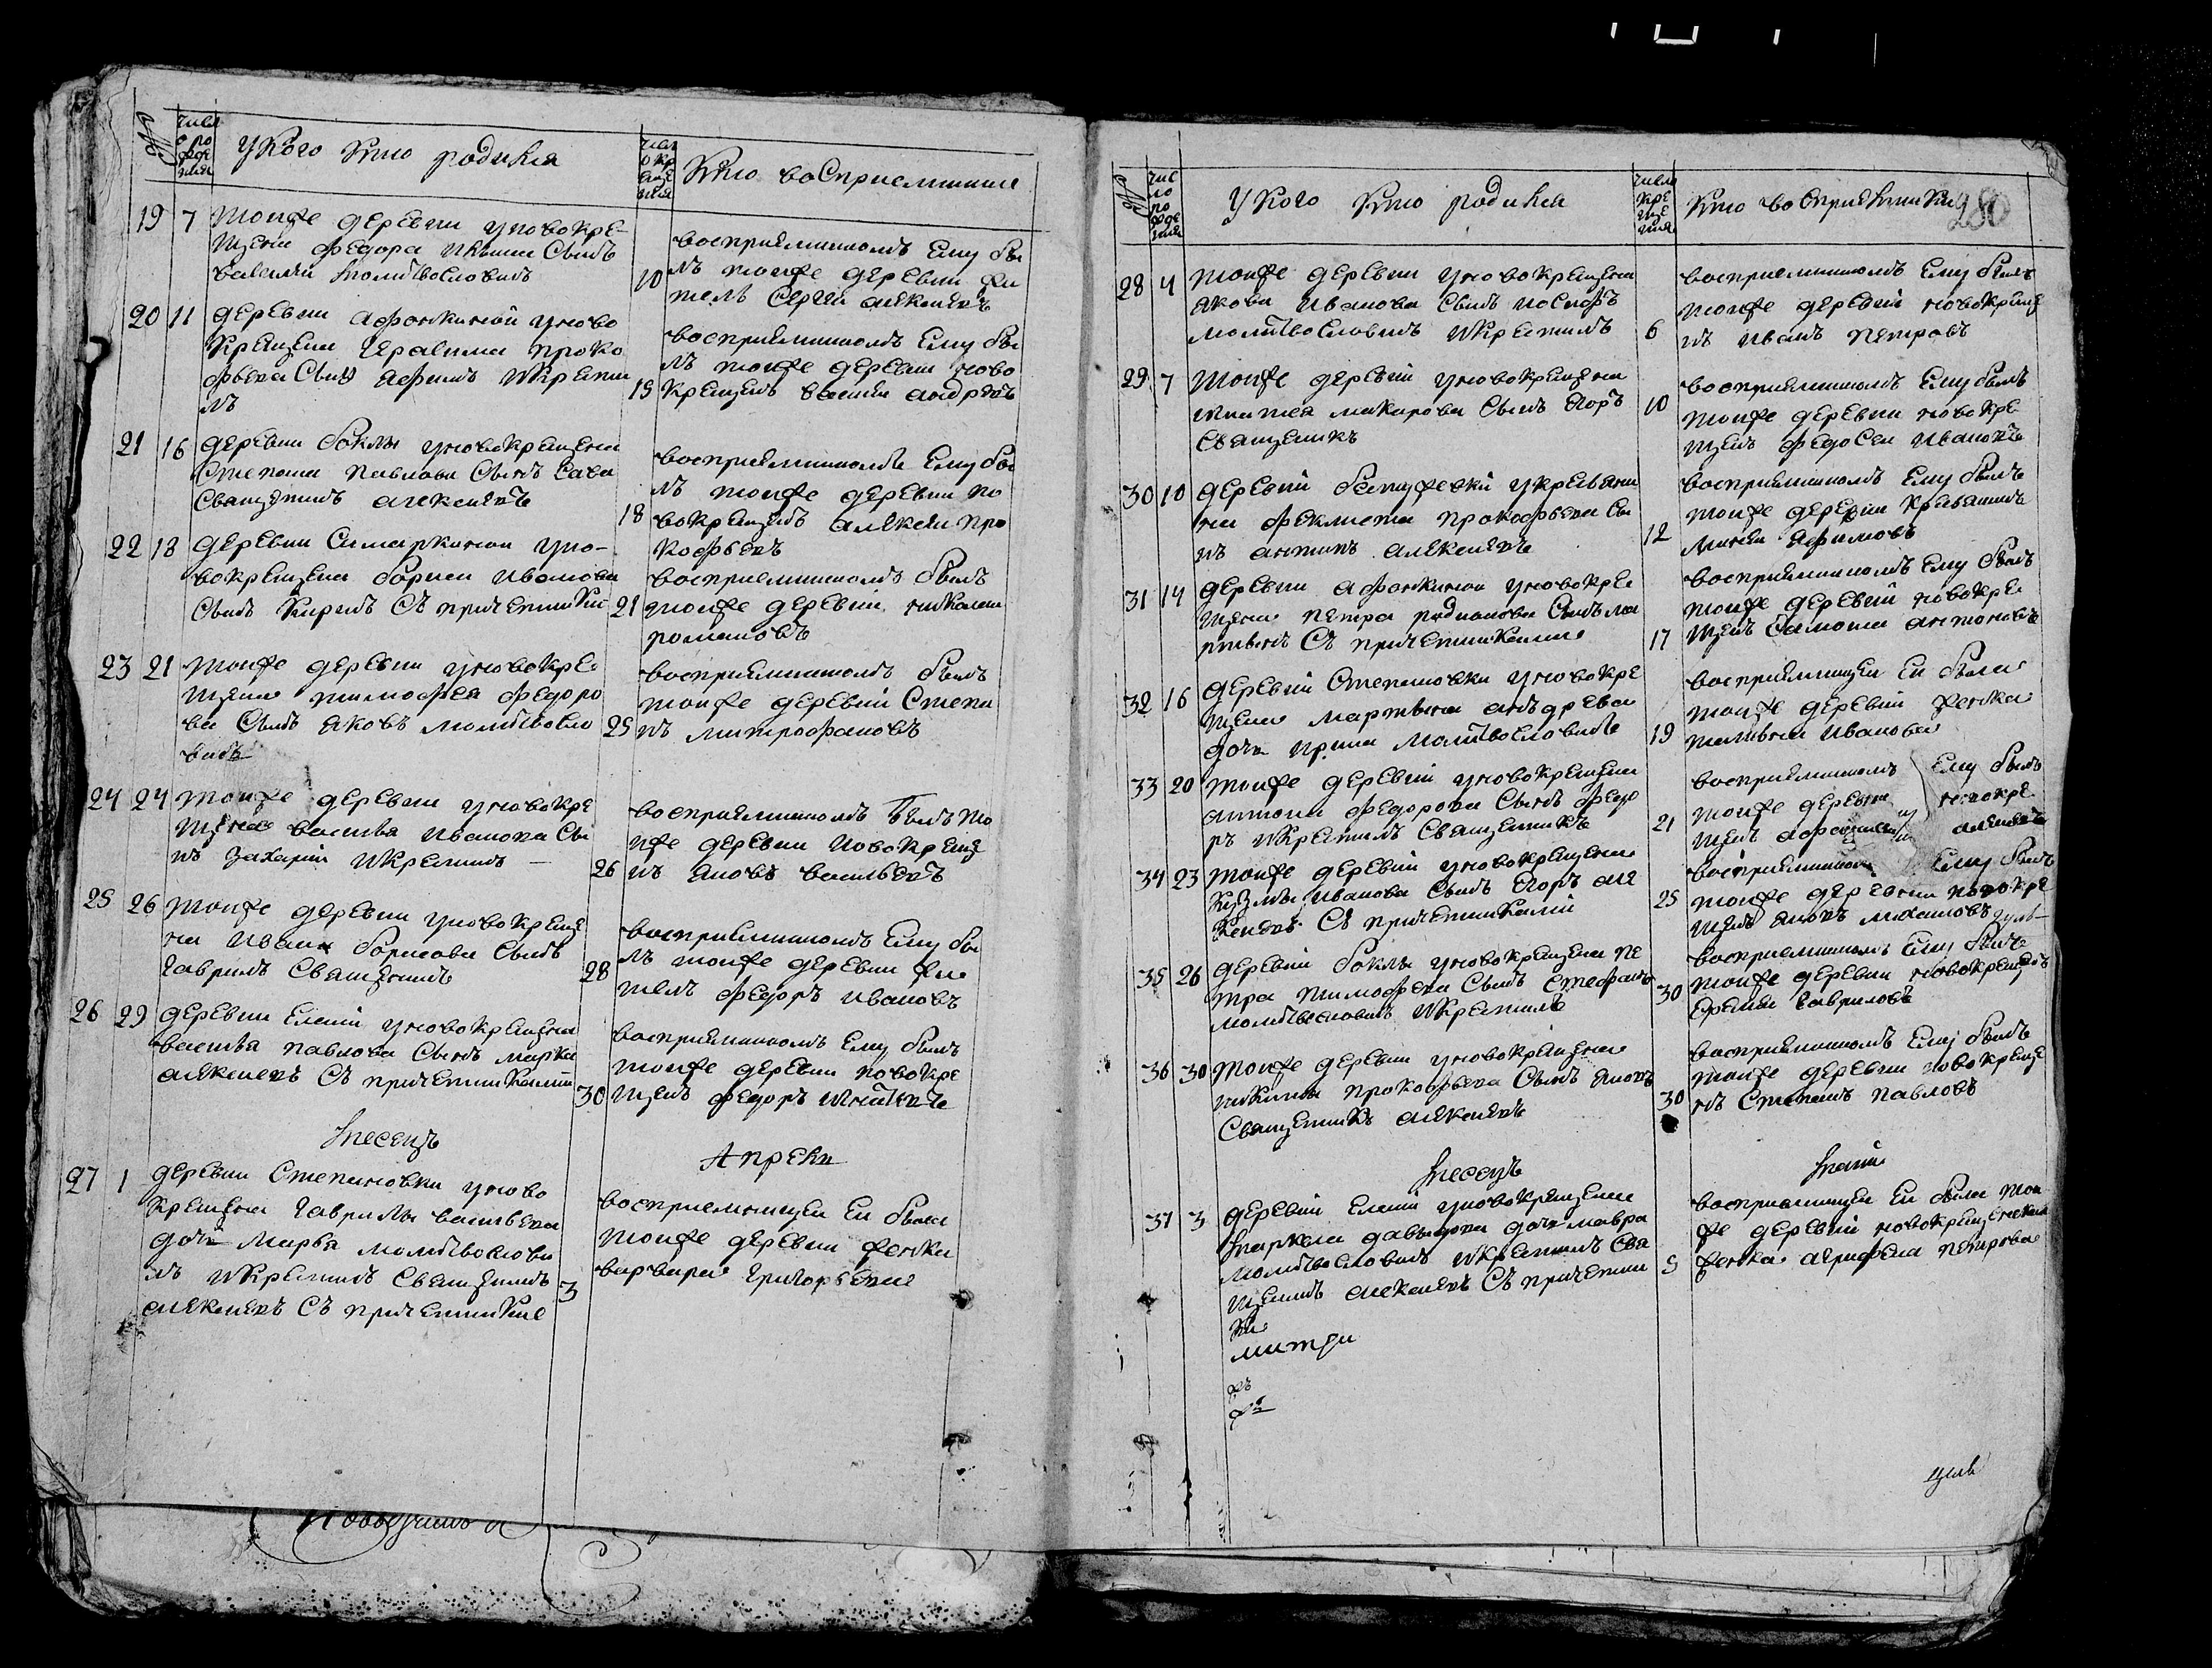 №
числ
о ро
жде
ния
У кого кто родился
числ
о кр
еще
ния
Кто восприемники
19 7 тоиже деревни уновокре
щена федора Сынъ
василий молитвословилъ
10
восприемникомъ Ему бы
лъ тоиже деревни жи
тель Сергеи алексеевъ
20 11 деревни афонкиной уново
крещена Герасима проко
фьева Сынъ Ефимъ Икрести
лъ
15
восприемникомъ Ему бы
лъ тоиже деревни ново
крещенъ василеи андреевъ
21 16 деревни боклы уновокрещена
Степана павлова Сынъ Сава
Священникъ алексеевъ
18
восприемникомъ Ему бы
лъ тоиже деревни но
вокрещенъ алексеи про
кофьевъ
22 18 деревни Симаркиной уно
вокрещена бориса иванова
Сынъ Кирилъ Съ причетники
21
восприемникомъ былъ
тоиже деревни николаи
романовъ
23 21 тоиже деревни уновокре
щена тимофея федоро
ва Сынъ яковъ молитвосло
вилъ
25
восприемникомъ былъ
тоиже деревни Степа
нъ митрофановъ
24 24 тоиже деревни уновокре
щена василья иванова Сы
нъ Захарий Икрестилъ
26
восприемникомъ былъ то
иже деревни новокреще
нъ яковъ васильевъ
25 26 тоиже деревни уновокреще
на Ивана борисова Сынъ
Гаврилъ Священникъ
28
восприемникомъ Ему бы
лъ тоиже деревни жи
тель федоръ ивановъ
26 29 деревни Елани уновокрещена
василья павлова Сынъ марка
алексеевъ Съ причетниками
30
восприемникомъ Ему былъ
тоиже деревни новокре
щенъ федоръ
Месецъ Апрель
27 1 деревни Степановки уново
крещена Гаврилы васильева
дочь Марья молитвослови
лъ Икрестилъ Священникъ
алексеевъ Съ причетники
3
восприемницеи Еи была
тоиже деревни женка
варвара Григорьева
№
чис
ло
ро
жде
ния
У кого кто родился
число
кре
ще
ния
Кто восприемники
280
28 4 тоиже деревни уновокрещена
якова Иванова Сынъ иосифъ
молитвословилъ Икрестилъ
6
восприемникомъ Ему былъ
тоиже деревни новокреще
нъ иванъ петровъ
29 7 тоиже деревни уновокрещена
макарова Сынъ Егоръ
Священникъ
10
восприемникомъ Ему былъ
тоиже деревни новокре
щенъ федосеи ивановъ
30 10 деревни укрестьяни
на феклиста прокофьева Сы
нъ антипъ алексеевъ
12
восприемникомъ Ему былъ
тоиже деревни
Ефимовъ
31 14 деревни афонкиной уновокре
щена петра родионова Сынъ ма
ртынъ Съ причетниками
17
восприемникомъ Ему былъ
тоиже деревни новокре
щенъ антоновъ
32 16 деревни Степановки уновокре
щена мартына анъдреева
дочь Ирина молитвословилъ
19
восприемницеи Еи была
тоиже деревни женка
Иванова
33 20 тоиже деревни уновокрещена
антона федорова Сынъ федо
ръ Икрестилъ Священникъ
21
восприемникомъ Ему былъ
тоиже деревни новокре
щенъ
34 23 тоиже деревни уновокрещена
кузмы иванова Сынъ Егоръ але
ксеевъ Съ причетниками
25
восприемникомъ Ему былъ
тоиже деревни новокре
щенъ яковъ
35 26 деревни боклы уновокрещена пе
тра тимофеева Сынъ Стефанъ
молитвословилъ Икрестилъ
30
восприемникомъ Ему былъ
тоиже деревни новокрещенъ
Гавриловъ
36 30 тоиже деревни уновокрещена
никиты прокофьева Сынъ яковъ
Священникъ алексеевъ
30
восприемникомъ Ему былъ
тоиже деревни новокреще
нъ Степанъ павловъ
Месецъ Маии
37 3 деревни Елани уновокрещена
маркела давыдова дочь мавра
молитвословилъ Икрестилъ Свя
щенникъ алексеевъ Съ причетни
ки
5
восприемницеи Еи была тои
же деревни новокрещенская
женка петрова